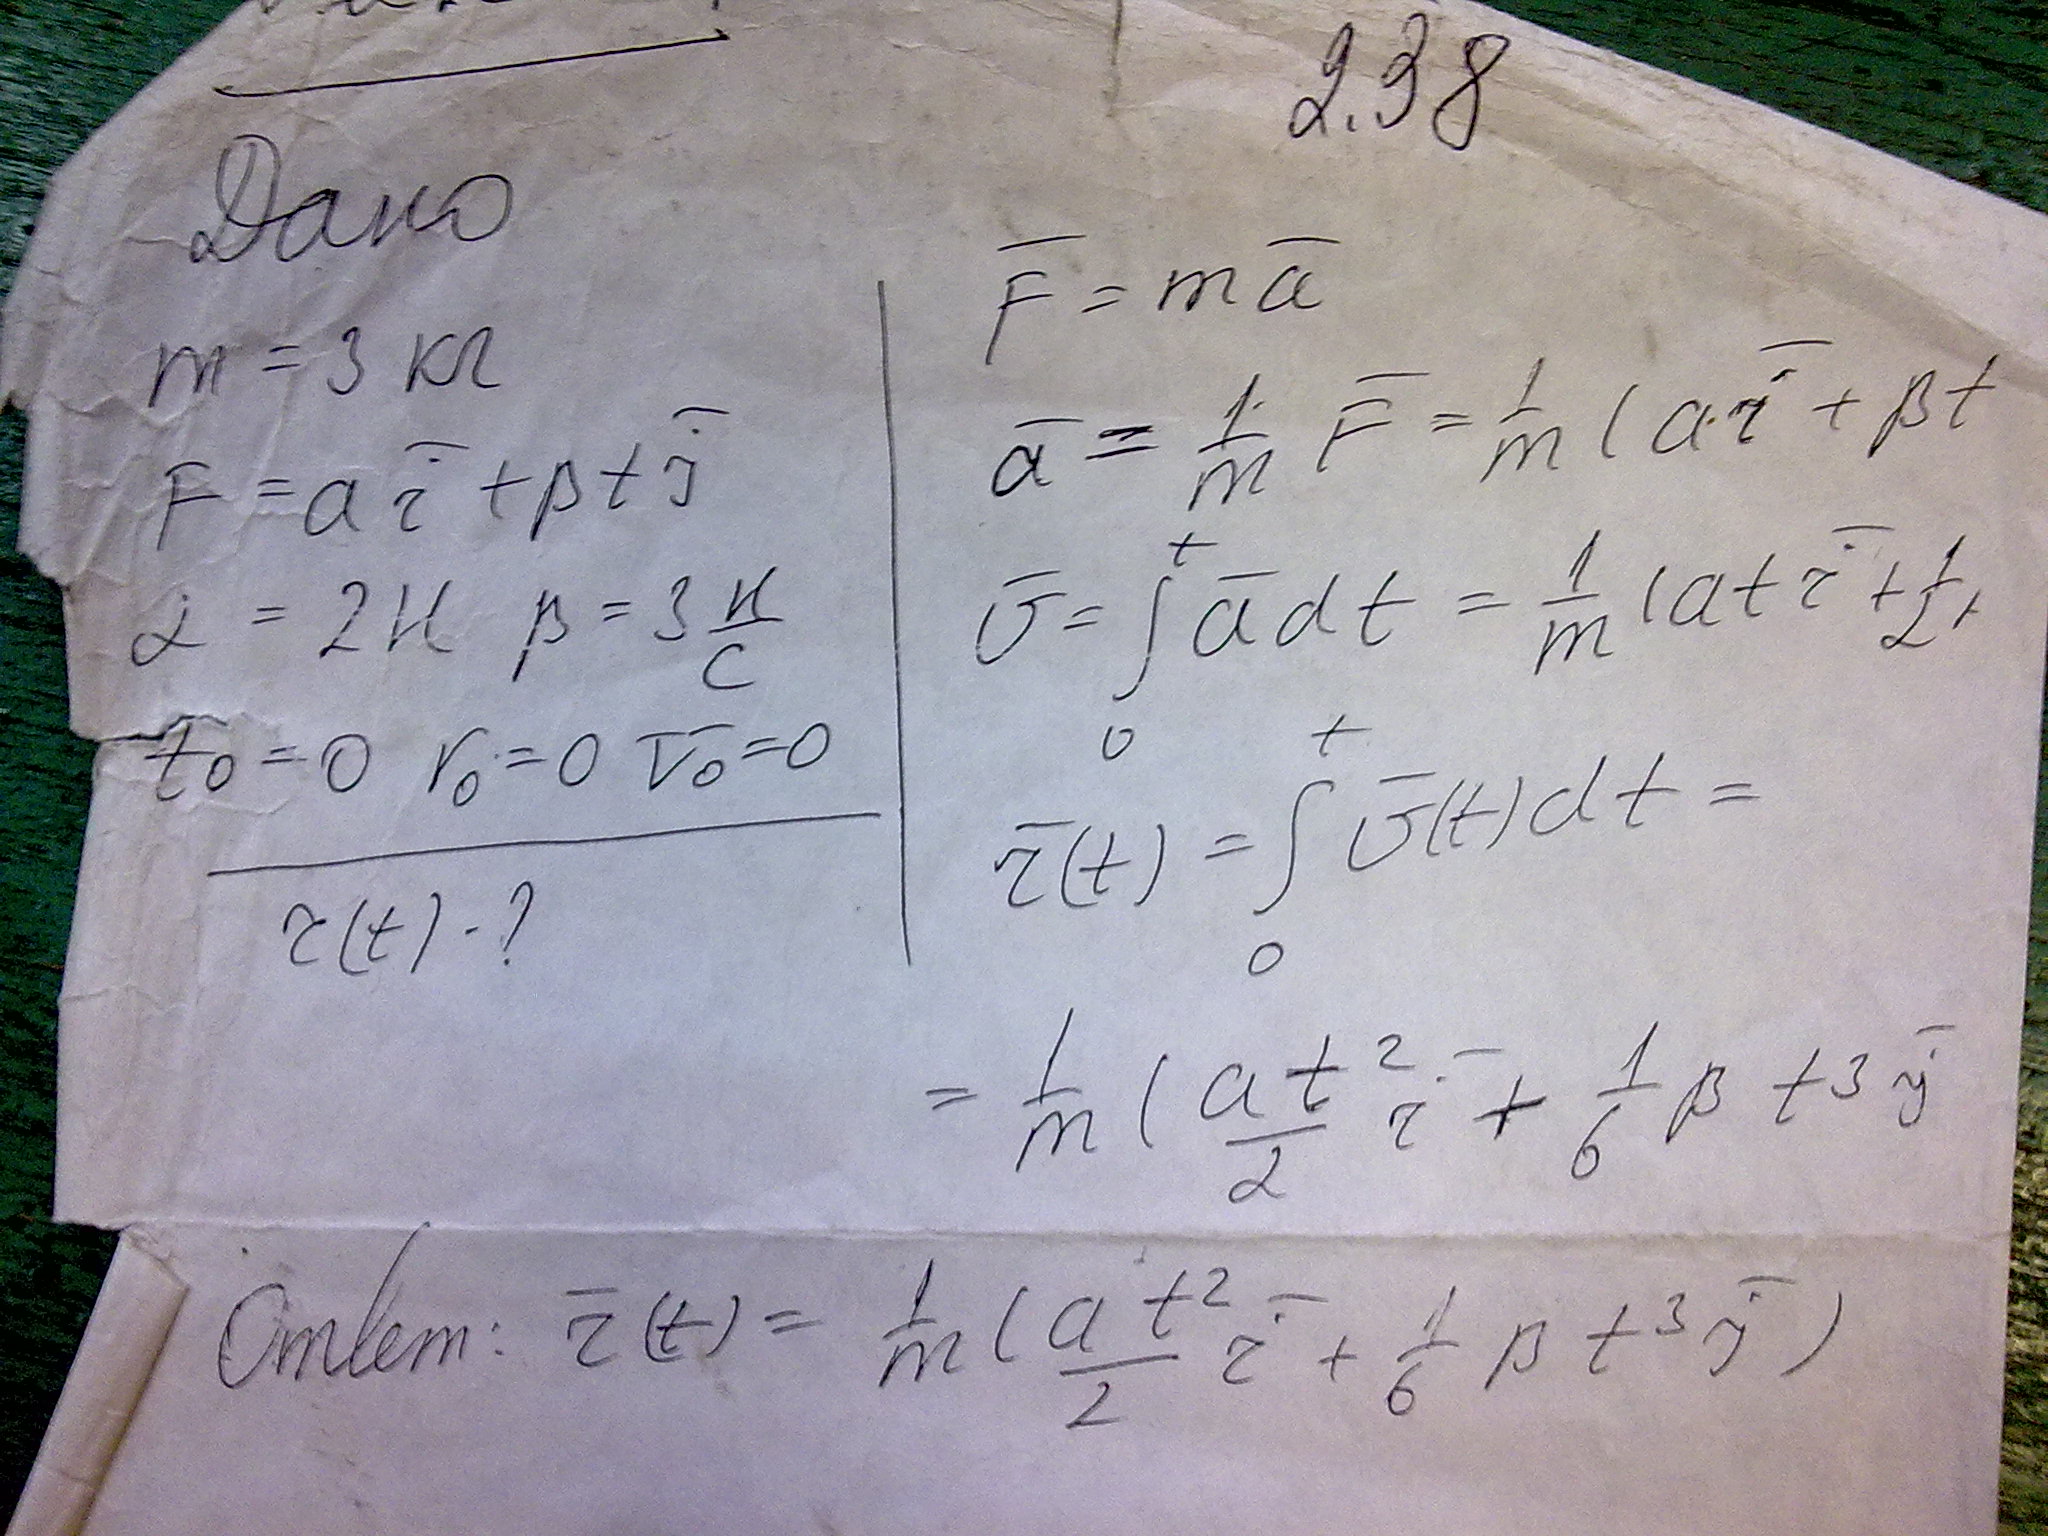 2.38
Дано
m = 3 кг
F = a i̅ + β t j̅
α = 2Н β = 3 Н/с
t₀ = 0 r₀ = 0 V̅₀ = 0
r(t) - ?
F̅ = m a̅
a̅ = 1/m F̅ = 1/m ( a i̅ + β t
υ̅ = ∫₀ᵗ a̅ dt = 1/m ( a t i̅ + 1/2
r̅(t) = ∫₀ᵗ υ̅(t) dt =
= 1/m ( a t²/2 i̅ + 1/6 β t³ j̅
Ответ: r̅(t) = 1/m ( a t²/2 i̅ + 1/6 β t³ j̅ )